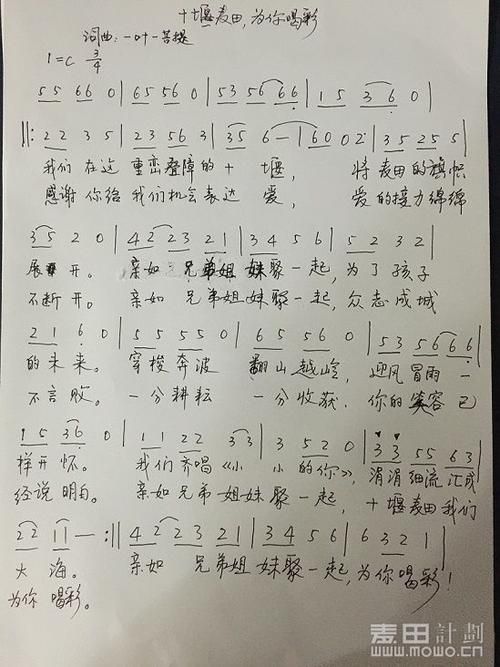 十堰麦田,为你喝彩
词曲:一叶一菩提
1=C 3/4
55 66 0 | 65 56 0 | 53 56 66 | 1 5 36 0 |
||: 22 3 5 | 23 56 3 | 35 6 — | 60 0 2 | 35 25 5 |
我们 在这 重峦叠障的 十 堰, 将麦田的旗帜
感谢 你给 我们机会表达 爱, 爱的接力绵绵
35 2 0 | 42 23 21 | 3 4 5 6 | 5 2 3 2 |
展开。 亲如 兄弟姐妹聚一起,为了孩子
不断开。 亲如 兄弟姐妹聚一起,众志成城
2 1 6 0 | 55 55 0 | 65 56 0 | 53 56 66 |
的未来。 穿梭奔波 翻山越岭, 迎风冒雨一
不言败。 一分耕耘 一分收获. 你的笑容已
1 5 36 0 | 1 1 22 33 | 3 5 2 0 | 33 55 63 |
样开怀。 我们齐唱《小 小的你》, 涓涓细流汇成
经说明白。 亲如兄弟姐妹聚一起, 十堰麦田我们
22 11 — :|| 42 23 21 | 3 4 5 6 | 6 3 2 1 |
大 海。 亲如 兄弟姐妹聚一起,为你喝彩!
为你 喝彩。
麦田計劃
www.mowo.cn